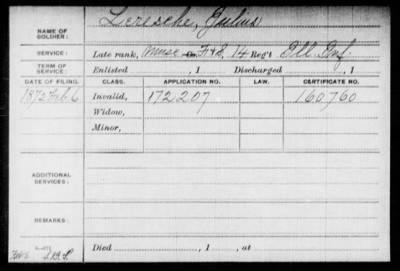 Leresche, Julius
NAME OF SOLDIER:
SERVICE: Late rank, Musc F&S, 14 Reg't Ill Inf
TERM OF SERVICE: Enlisted , 1 Discharged , 1
DATE OF FILING. CLASS. APPLICATION NO. LAW. CERTIFICATE NO.
1872 Feb 6 Invalid, 172207 160760
Widow,
Minor,
ADDITIONAL SERVICES:
REMARKS:
Died , 1 , at